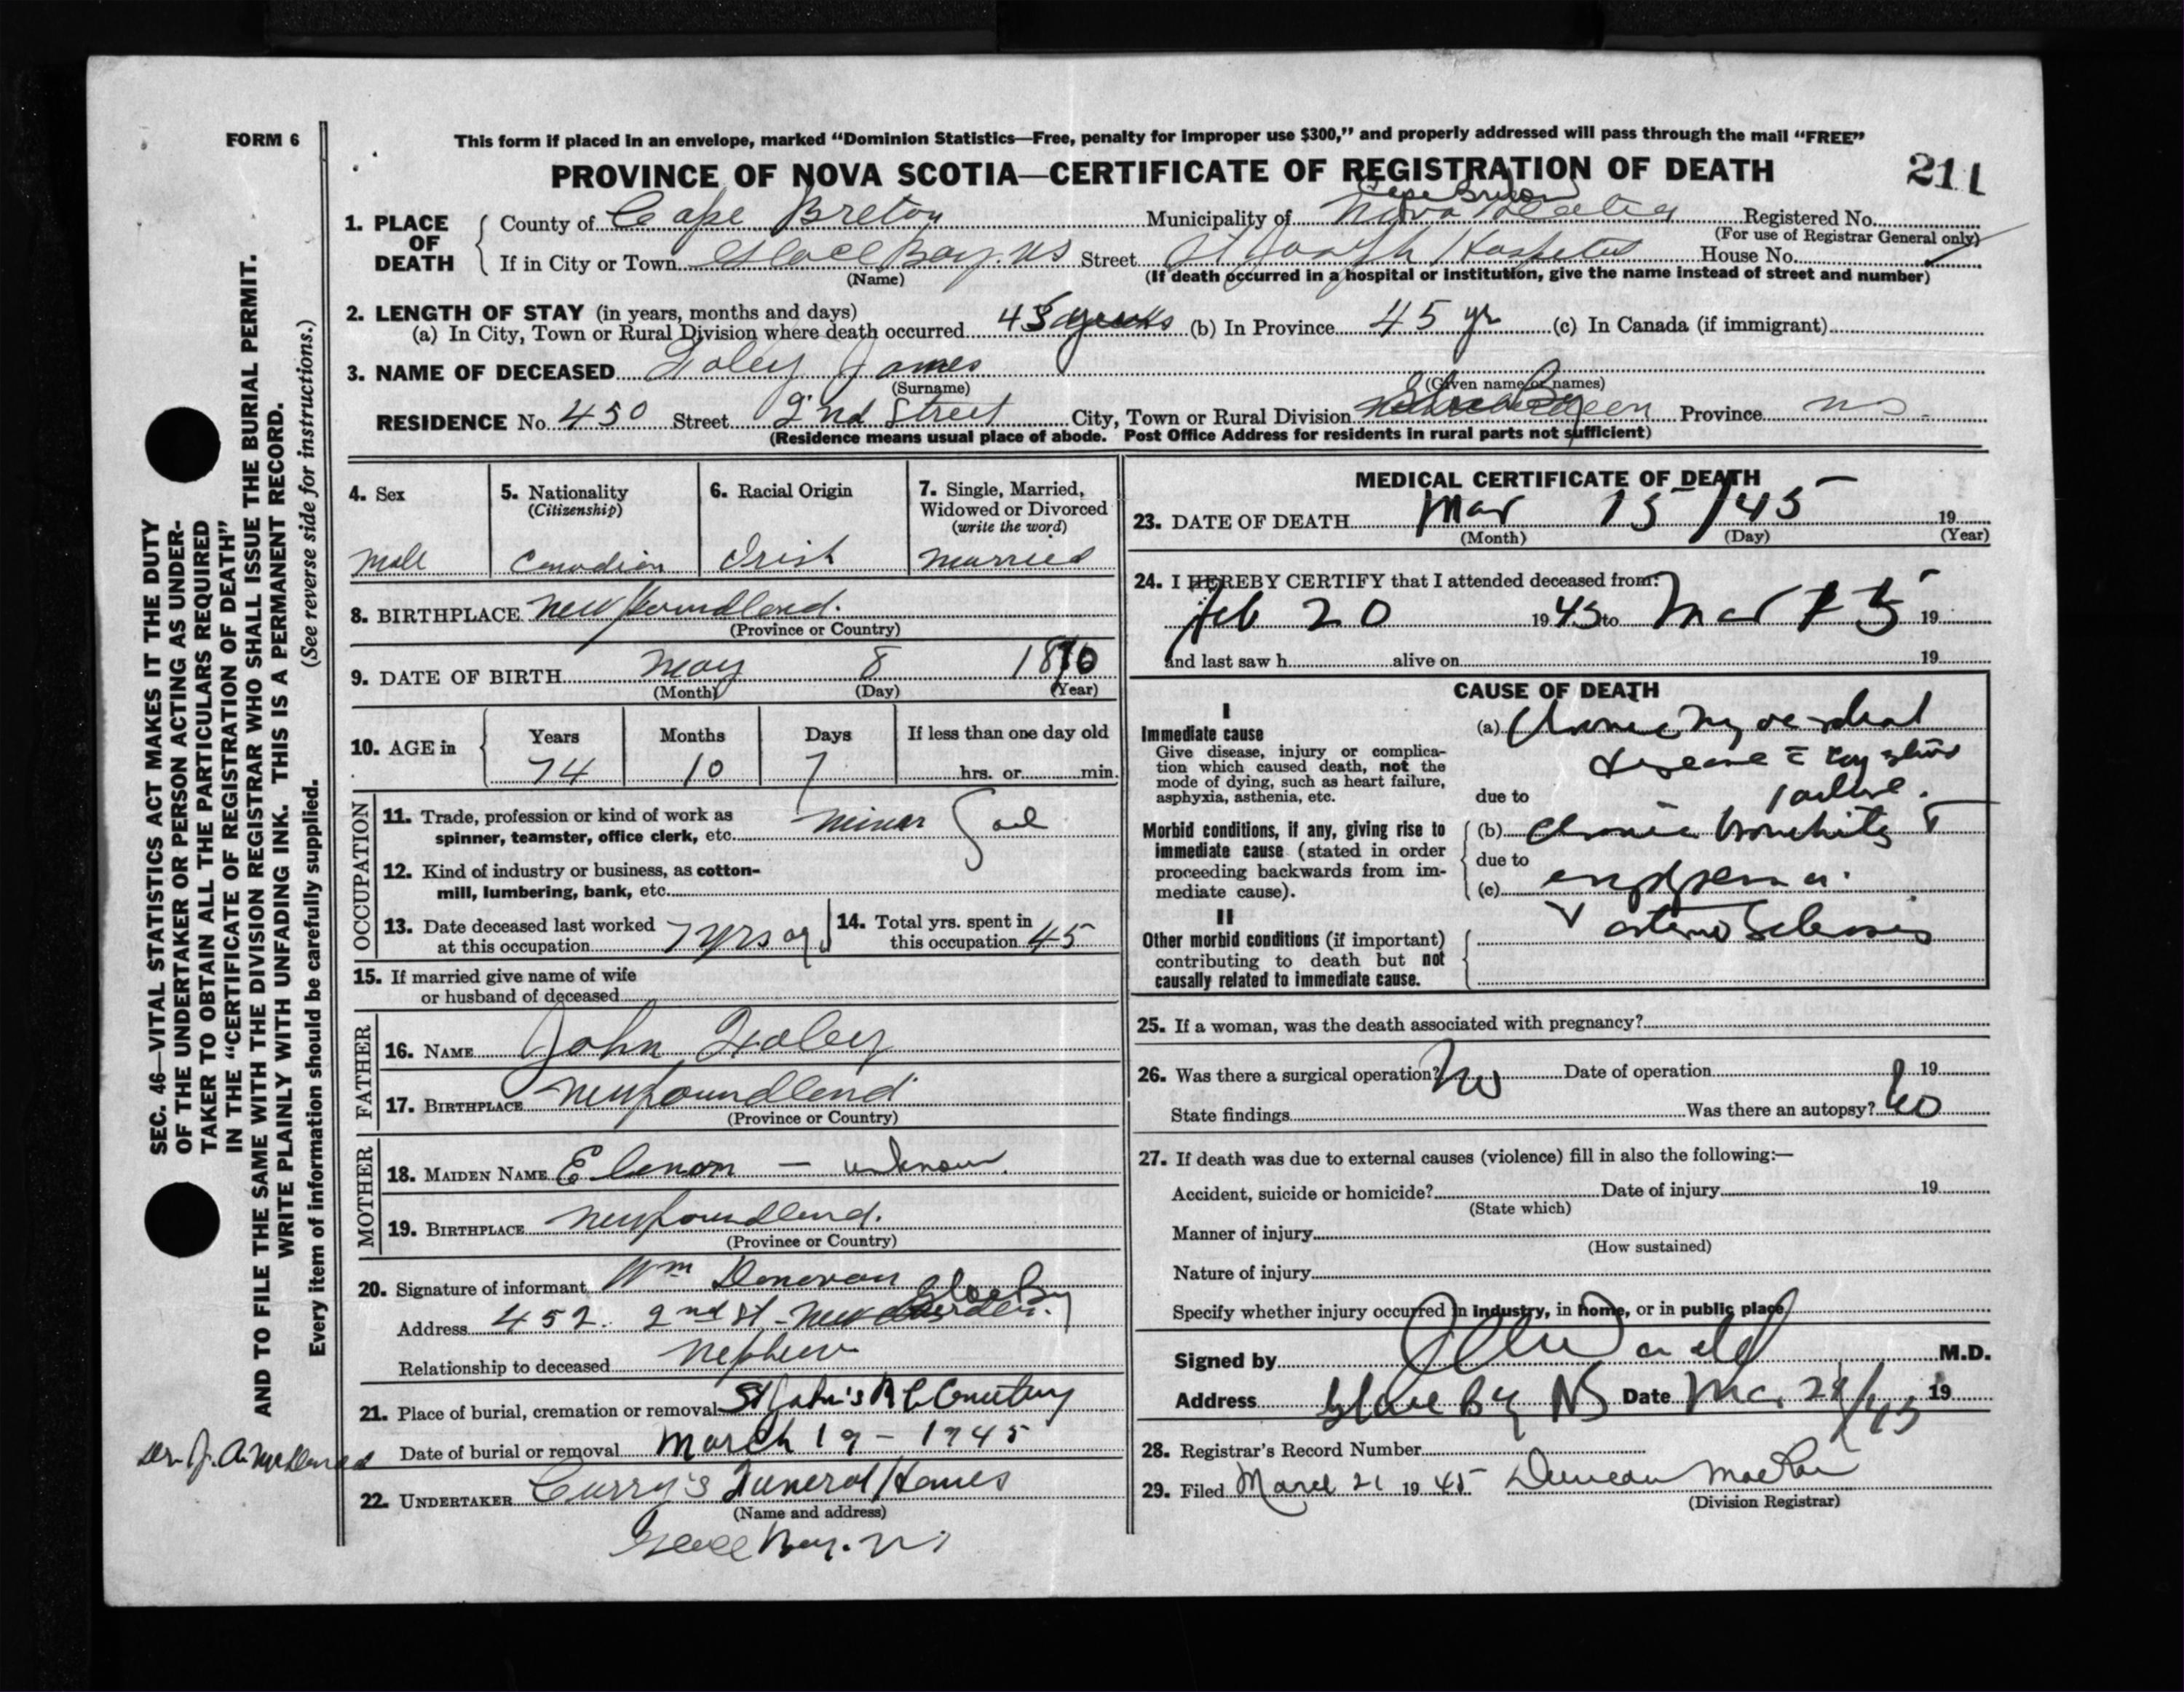 FORM 6
This form if placed in an envelope, marked “Dominion Statistics—Free, penalty for improper use $300,” and properly addressed will pass through the mail “FREE”
PROVINCE OF NOVA SCOTIA—CERTIFICATE OF REGISTRATION OF DEATH
211
1. PLACE OF DEATH
County of Cape Breton Municipality of Nova Scotia Cape Breton Registered No.
(For use of Registrar General only)
If in City or Town Glace Bay. NS Street St Joseph Hospital House No.
(Name) (If death occurred in a hospital or institution, give the name instead of street and number)
2. LENGTH OF STAY (in years, months and days)
(a) In City, Town or Rural Division where death occurred 45 (b) In Province 45 yr (c) In Canada (if immigrant)
3. NAME OF DECEASED Foley James
(Surname) (Given name or names)
RESIDENCE No. 450 Street 2nd Street City, Town or Rural Division Glace Bay Province NS
(Residence means usual place of abode. Post Office Address for residents in rural parts not sufficient)
4. Sex
Male
5. Nationality
(Citizenship)
Canadian
6. Racial Origin
Irish
7. Single, Married, Widowed or Divorced
(write the word)
Married
8. BIRTHPLACE Newfoundland.
(Province or Country)
9. DATE OF BIRTH May 8 1870
(Month) (Day) (Year)
10. AGE in
Years Months Days If less than one day old
74 10 7 hrs. or min.
OCCUPATION
11. Trade, profession or kind of work as
spinner, teamster, office clerk, etc. Miner Coal
12. Kind of industry or business, as cotton-
mill, lumbering, bank, etc.
13. Date deceased last worked
at this occupation 7 yrs ago
14. Total yrs. spent in
this occupation 45
15. If married give name of wife
or husband of deceased
FATHER
16. NAME John Foley
17. BIRTHPLACE Newfoundland
(Province or Country)
MOTHER
18. MAIDEN NAME Elenon — unknown
19. BIRTHPLACE Newfoundland.
(Province or Country)
20. Signature of informant Wm Donovan
Address 452. 2nd St. New Aberdeen. Glace Bay
Relationship to deceased Nephew
21. Place of burial, cremation or removal St John's R C Cemetery
Date of burial or removal March 19 - 1945
22. UNDERTAKER Curry's Funeral Homes
(Name and address)
Glace Bay. NS
MEDICAL CERTIFICATE OF DEATH
23. DATE OF DEATH Mar 15/45 19
(Month) (Day) (Year)
24. I HEREBY CERTIFY that I attended deceased from:
Feb 20 1945 to Mar 15 19
and last saw h alive on 19
CAUSE OF DEATH
I
Immediate cause
Give disease, injury or complica-
tion which caused death, not the
mode of dying, such as heart failure,
asphyxia, asthenia, etc.
(a) Chronic Myocardial
disease
failure.
due to
Morbid conditions, if any, giving rise to
immediate cause (stated in order
proceeding backwards from im-
mediate cause).
(b) Chronic bronchitis
due to
(c) emphysema.
arterio Sclerosis
II
Other morbid conditions (if important)
contributing to death but not
causally related to immediate cause.
25. If a woman, was the death associated with pregnancy?
26. Was there a surgical operation? No Date of operation 19
State findings Was there an autopsy? No
27. If death was due to external causes (violence) fill in also the following:—
Accident, suicide or homicide? Date of injury 19
(State which)
Manner of injury
(How sustained)
Nature of injury
Specify whether injury occurred in industry, in home, or in public place
Signed by M.D.
Address Glace Bay NS Date Mar 19
28. Registrar's Record Number
29. Filed March 21 1945 Duncan MacRae
(Division Registrar)
SEC. 46—VITAL STATISTICS ACT MAKES IT THE DUTY
OF THE UNDERTAKER OR PERSON ACTING AS UNDER-
TAKER TO OBTAIN ALL THE PARTICULARS REQUIRED
IN THE “CERTIFICATE OF REGISTRATION OF DEATH”
AND TO FILE THE SAME WITH THE DIVISION REGISTRAR WHO SHALL ISSUE THE BURIAL PERMIT.
WRITE PLAINLY WITH UNFADING INK. THIS IS A PERMANENT RECORD.
Every item of information should be carefully supplied. (See reverse side for instructions.)
Dr. J. A. McDonald